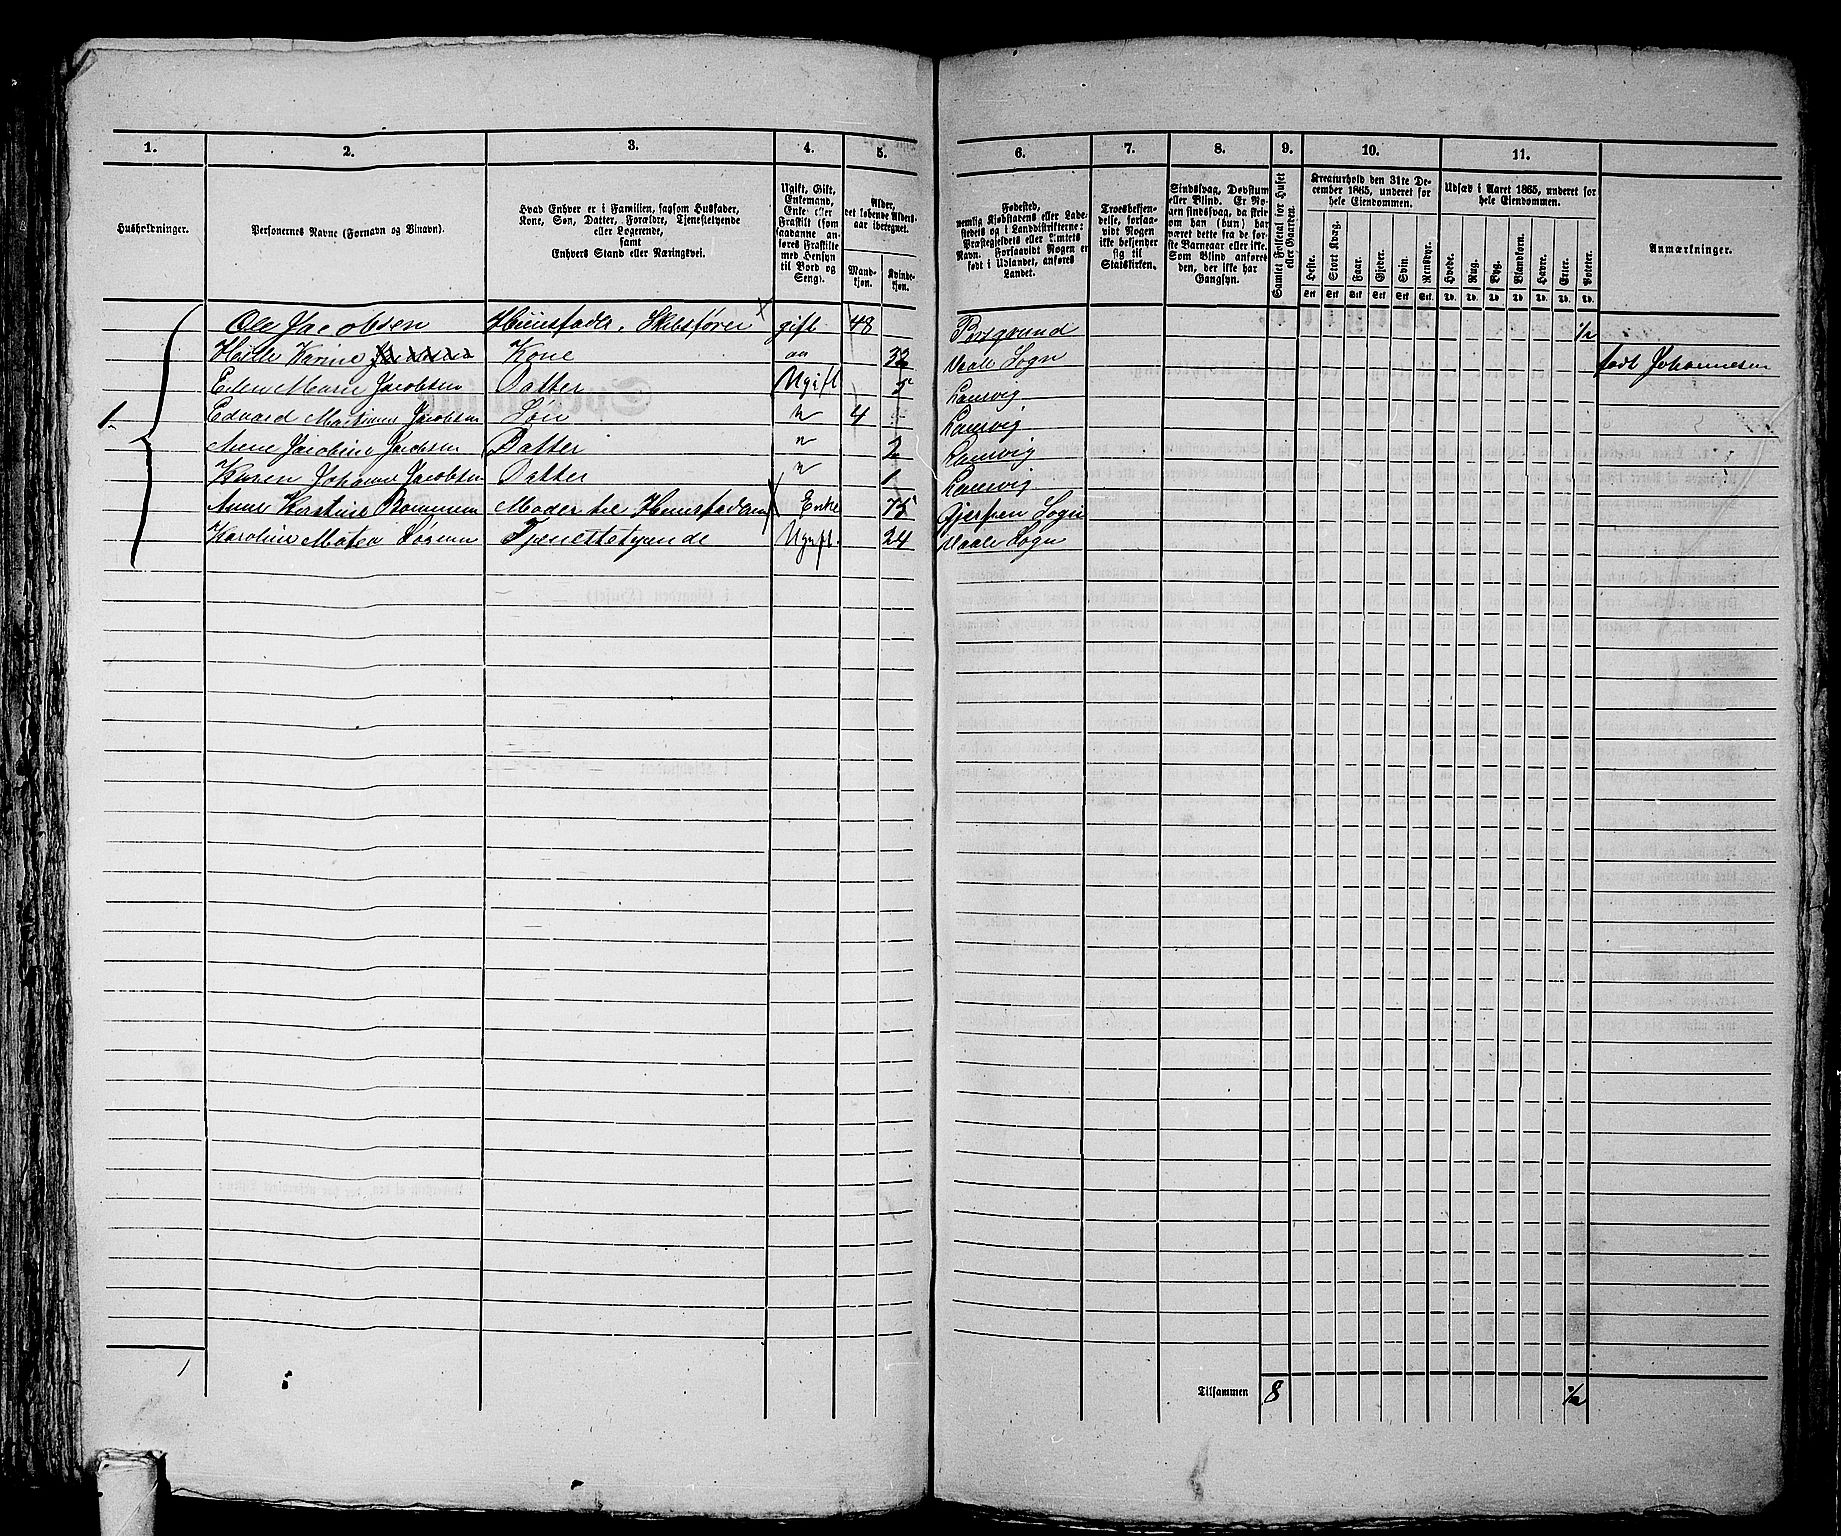 1. 2. 3. 4. 5. 6. 7. 8. 9. 10. 11.
Husholdninger.
Personernes Navne (Fornavn og Tilnavn).
Hvad Enhver er i Familien, saasom Husfader,
Kone, Søn, Datter, Forældre, Tjenestetyende
eller Logerende,
samt
Enhvers Stand eller Næringsvei.
Ugift, Gift,
Enkemand,
Enke eller
Fraskilt (som
saadanne an-
føres Fraskilte
med Hensyn
til Bord og
Seng).
Alder,
det løbende Alders-
aar iberegnet.
Mand-
kjøn.
Kvinde-
kjøn.
Fødested,
nemlig Kjøbstadens eller Lade-
stedets og i Landdistrikterne:
Præstegjeldets eller Amtets
Navn. Forsaavidt Nogen er
født i Udlandet, anføres
Landet.
Troesbekjen-
delse, forsaa-
vidt Nogen
ikke bekjender
sig til
Statskirken.
Sindssvag, Døvstum
eller Blind. Er No-
gen sindssvag, da skri-
ves om han (hun) har
været dette fra de før-
ste Barneaar eller ikke.
Som Blind anføres
den, der ikke har
Gangsyn.
Samlet Folketal for Huset
eller Gaarden.
Kreaturhold den 31te De-
cember 1865, underet for
hele Eiendommen.
Heste. Stort Kvæg. Faar. Gjeder. Svin. Rensdyr.
Stk. Stk. Stk. Stk. Stk. Stk.
Udsæd i Aaret 1865, underet for
hele Eiendommen.
Hvede. Rug. Byg. Blandkorn. Havre. Erter. Poteter.
Td. Td. Td. Td. Td. Td. Td.
Anmærkninger.
Ole Jacobsen Huusfader, Skibsfører gift 48 Porsgrund ½
Helle Karine Kone 32 Vaale Sogn født Johannesen
Ellen Marie Jacobsen Datter Ugift 5 Laurvig
1. Eduard Jacobsen Søn " 4 Laurvig
Anne Jacobine Jacobsen Datter " 2 Laurvig
Karen Johanne Jacobsen Datter " 1 Laurvig
Anne Kirstine Moder til Huusfaderen Enke 75 Gjerpen Sogn
Karoline Tjenestetyende Ugift. 24 Vaale Sogn
Tilsammen 8 ½